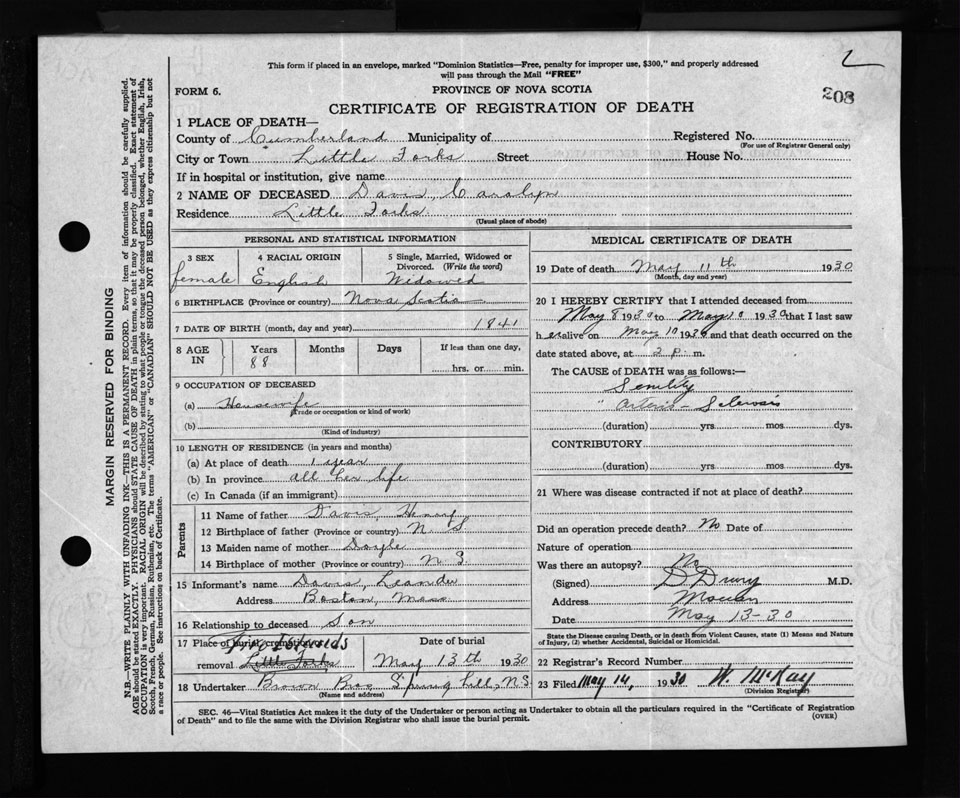 2
208
This form if placed in an envelope, marked "Dominion Statistics—Free, penalty for improper use, $300," and properly addressed
will pass through the Mail "FREE"
FORM 6.
PROVINCE OF NOVA SCOTIA
CERTIFICATE OF REGISTRATION OF DEATH
1 PLACE OF DEATH—
County of Cumberland Municipality of Registered No.
(For use of Registrar General only)
City or Town Little Forks Street House No.
If in hospital or institution, give name
2 NAME OF DECEASED Davis, Caralyn
Residence Little Forks
(Usual place of abode)
PERSONAL AND STATISTICAL INFORMATION
3 SEX
female
4 RACIAL ORIGIN
English
5 Single, Married, Widowed or
Divorced. (Write the word)
Widowed
6 BIRTHPLACE (Province or country) Nova Scotia
7 DATE OF BIRTH (month, day and year) 1841
8 AGE
IN
Years
88
Months
Days
If less than one day,
hrs. or min.
9 OCCUPATION OF DECEASED
(a) Housewife
(Trade or occupation or kind of work)
(b)
(Kind of industry)
10 LENGTH OF RESIDENCE (in years and months)
(a) At place of death 1 year
(b) In province all her life
(c) In Canada (if an immigrant)
Parents
11 Name of father Davis, Henry
12 Birthplace of father (Province or country) N. S.
13 Maiden name of mother Doyle
14 Birthplace of mother (Province or country) N. S.
15 Informant's name Davis, Leander
Address Boston, Mass.
16 Relationship to deceased Son
17 Place of burial, cremation or
removal Little Forks
Date of burial
May 13th 1930
18 Undertaker Brown Bros, Spring hill, N S
(Name and address)
MEDICAL CERTIFICATE OF DEATH
19 Date of death May 11th 1930
(Month, day and year)
20 I HEREBY CERTIFY that I attended deceased from
May 8 1930 to May 10 1930 that I last saw
h er alive on May 10 1930 and that death occurred on the
date stated above, at 2 p. m.
The CAUSE of DEATH was as follows:—
Senility
" Arterio-Sclerosis
(duration) yrs mos dys.
CONTRIBUTORY
(duration) yrs. mos. dys.
21 Where was disease contracted if not at place of death?
Did an operation precede death? No Date of
Nature of operation
Was there an autopsy? No
(Signed) D Drury M.D.
Address Maccan
Date May 13-30
State the Disease causing Death, or in death from Violent Causes, state (1) Means and Nature
of Injury, (2) whether Accidental, Suicidal or Homicidal.
22 Registrar's Record Number
23 Filed May 14, 1930 W. McKay
(Division Registrar)
SEC. 46—Vital Statistics Act makes it the duty of the Undertaker or person acting as Undertaker to obtain all the particulars required in the "Certificate of Registration
of Death" and to file the same with the Division Registrar who shall issue the burial permit.
(OVER)
MARGIN RESERVED FOR BINDING
N.B.—WRITE PLAINLY WITH UNFADING INK—THIS IS A PERMANENT RECORD. Every item of information should be carefully supplied.
AGE should be stated EXACTLY. PHYSICIANS should STATE CAUSE OF DEATH in plain terms, so that it may be properly classified. Exact statement of
OCCUPATION is very important. RACIAL ORIGIN will be described by stating to what people or tongue the deceased person belonged, whether English, Irish,
Scotch, French, German, Russian, Ruthenian, etc. The terms "AMERICAN" or "CANADIAN" SHOULD NOT BE USED as they express citizenship but not
a race or people. See instructions on back of Certificate.